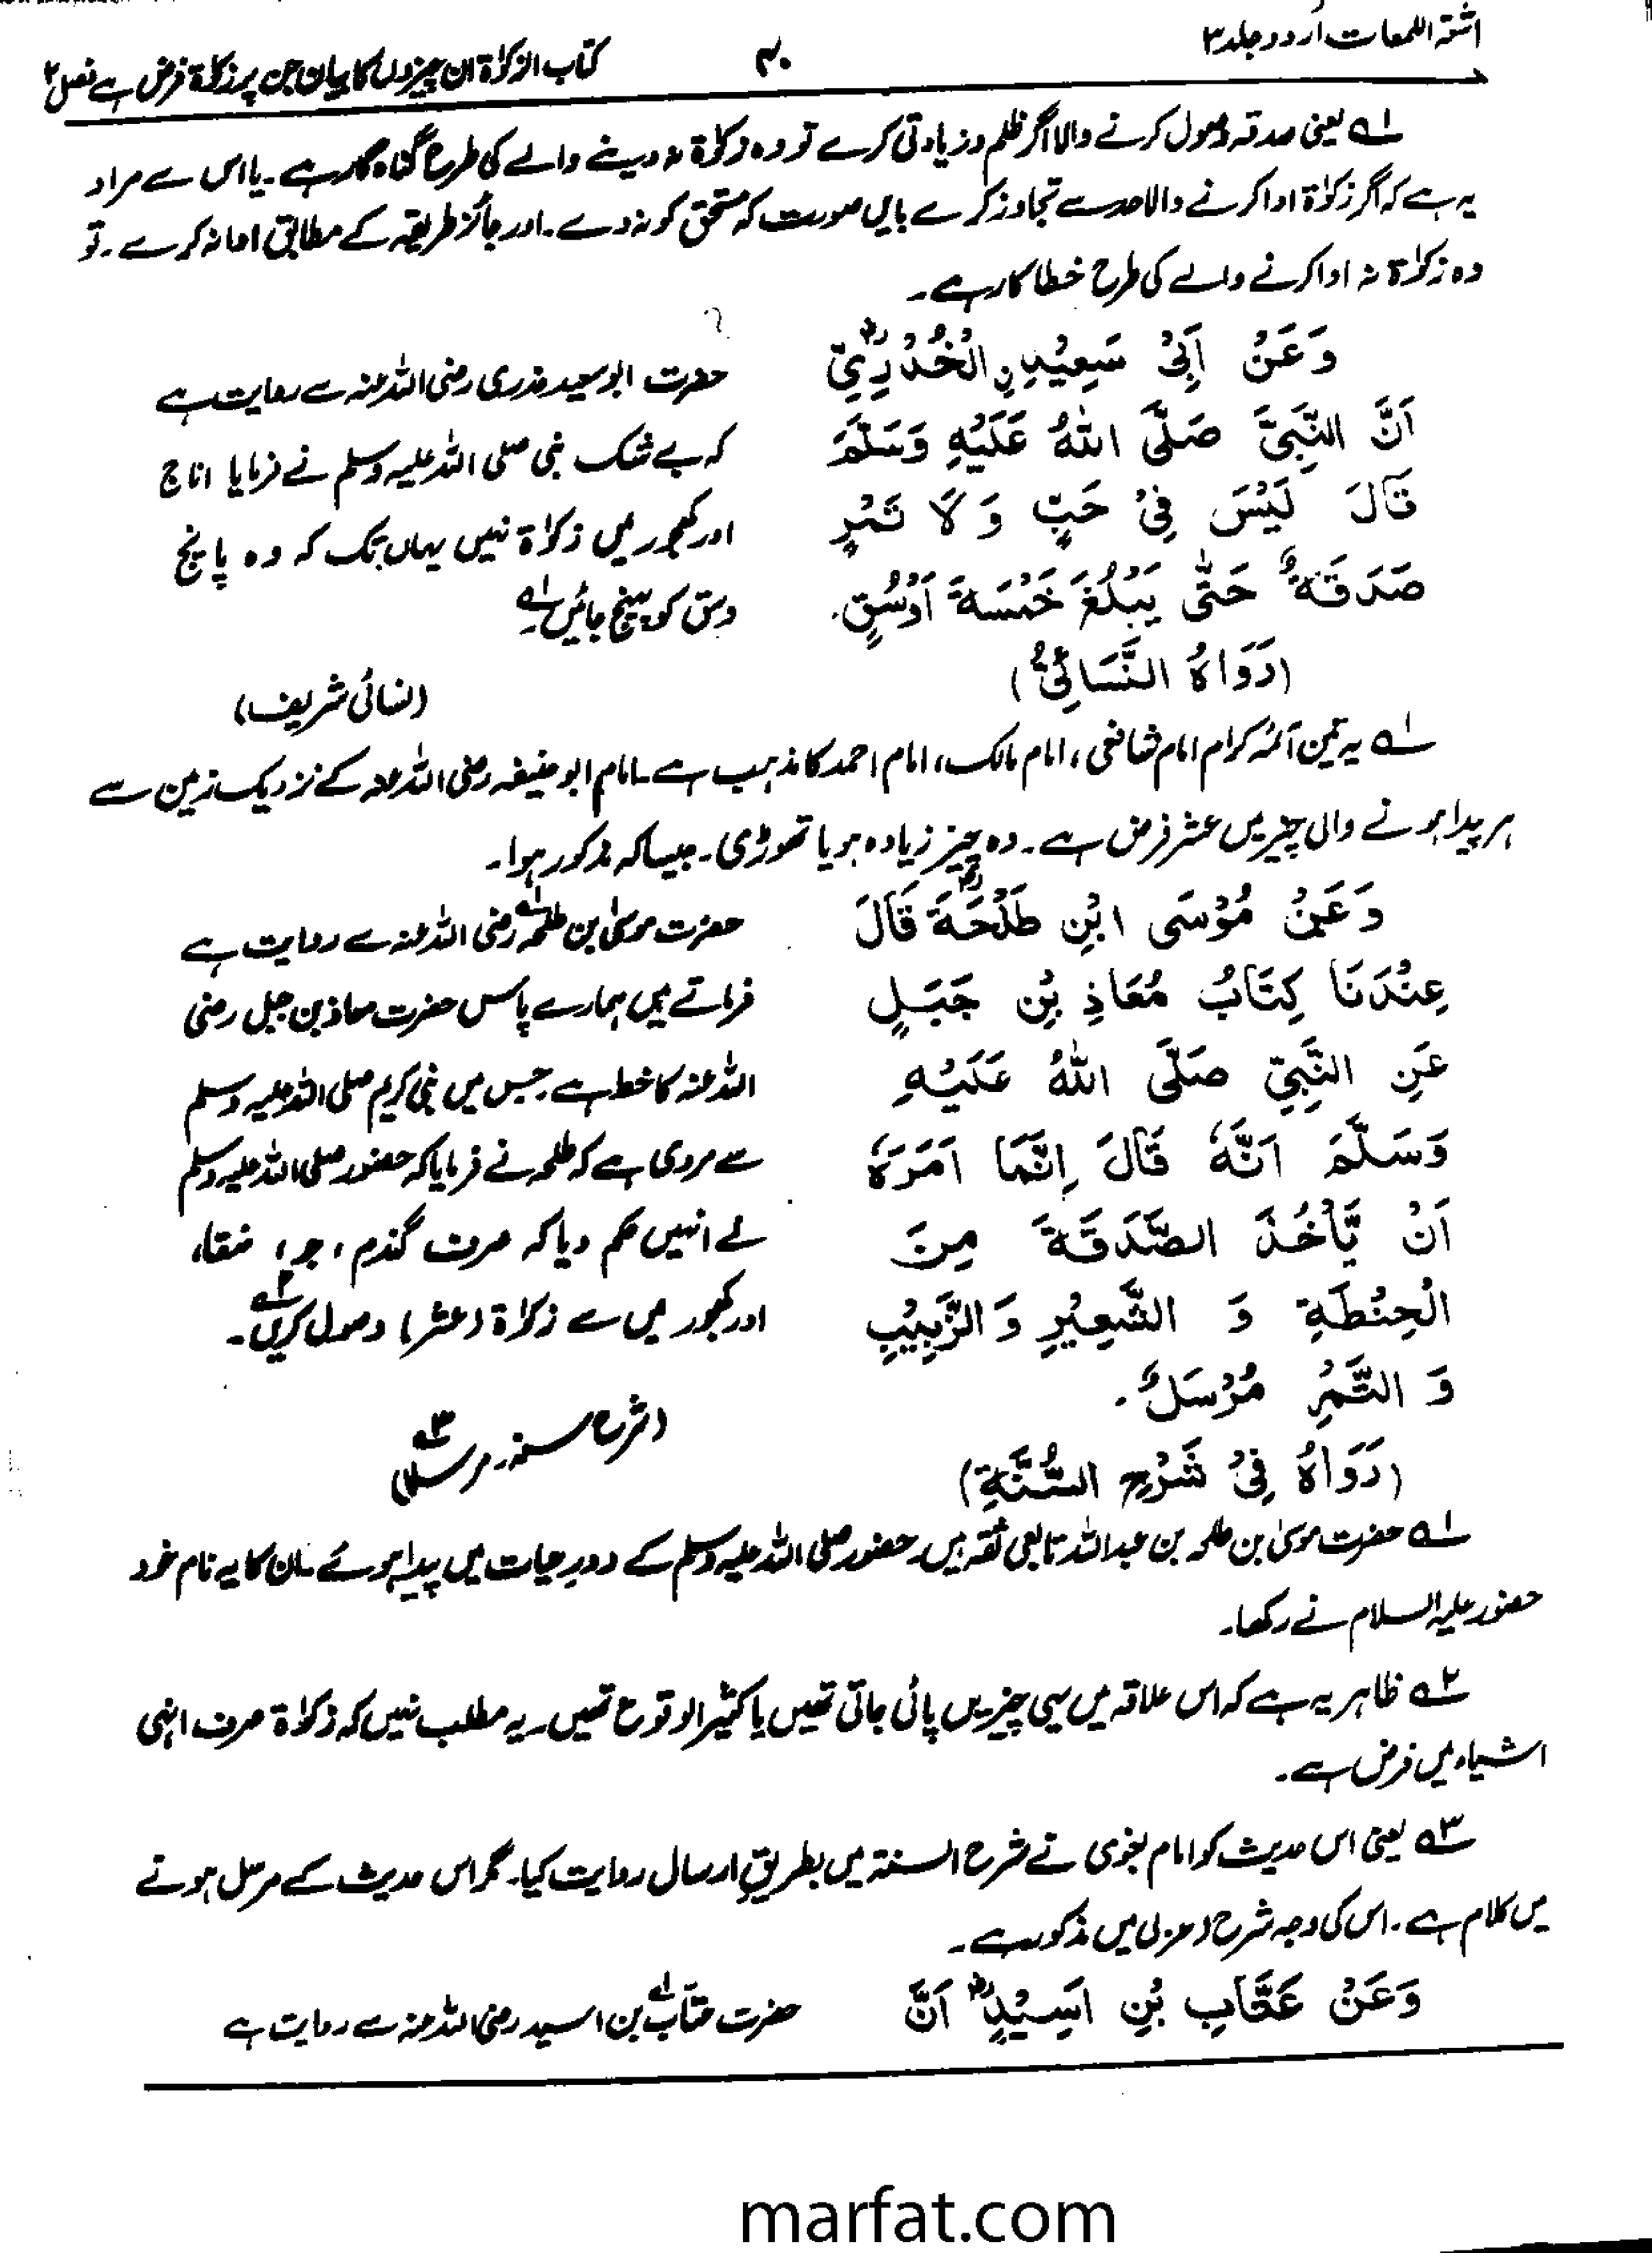 اشعۃ اللمعات اردو جلد ۳
۴۰
کتاب الزکوٰۃ ان چیزوں کا بیان جن پر زکوٰۃ فرض ہے فصل ۲
۱؎ یعنی صدقہ وصول کرنے والا اگر ظلم و زیادتی کرے تو وہ زکوٰۃ نہ دینے والے کی طرح گناہ گار ہے۔ یا اس سے مراد
یہ ہے کہ اگر زکوٰۃ ادا کرنے والا حد سے تجاوز کرے بایں صورت کہ مستحق کو نہ دے۔ اور جائز طریقہ کے مطابق ادا نہ کرے۔ تو
وہ زکوٰۃ نہ ادا کرنے والے کی طرح خطا کار ہے۔
وَعَنْ اَبِیْ سَعِیْدِنِ الْخُدْرِیِّ
اَنَّ النَّبِیَّ صَلَّی اللّٰهُ عَلَیْهِ وَسَلَّمَ
قَالَ لَیْسَ فِیْ حَبٍّ وَّلَا تَمْرٍ
صَدَقَةٌ حَتّٰی یَبْلُغَ خَمْسَةَ اَوْسُقٍ.
(رَوَاهُ النَّسَائِیُّ)
حضرت ابو سعید خدری رضی اللہ عنہ سے روایت ہے
کہ بے شک نبی صلی اللہ علیہ وسلم نے فرمایا اناج
اور کھجور میں زکوٰۃ نہیں یہاں تک کہ وہ پانچ
وسق کو پہنچ جائیں ۱؎
(نسائی شریف)
۱؎ یہ تین آئمہ کرام امام شافعی، امام مالک، امام احمد کا مذہب ہے۔ امام ابو حنیفہ رضی اللہ عنہ کے نزدیک زمین سے
ہر پیدا ہونے والی چیز میں عشر فرض ہے۔ وہ چیز زیادہ ہو یا تھوڑی۔ جیسا کہ مذکور ہوا۔
وَعَنْ مُوْسَی ابْنِ طَلْحَةَ قَالَ
عِنْدَنَا کِتَابُ مُعَاذِ بْنِ جَبَلٍ
عَنِ النَّبِیِّ صَلَّی اللّٰهُ عَلَیْهِ
وَسَلَّمَ اَنَّهٗ قَالَ اِنَّمَا اَمَرَهٗ
اَنْ یَّاْخُذَ الصَّدَقَةَ مِنَ
الْحِنْطَةِ وَ الشَّعِیْرِ وَ الزَّبِیْبِ
وَ التَّمْرِ مُرْسَلٌ.
(رَوَاهُ فِیْ شَرْحِ السُّنَّةِ)
حضرت موسیٰ بن طلحہ ۱؎ رضی اللہ عنہ سے روایت ہے
فرماتے ہیں ہمارے پاس حضرت معاذ بن جبل رضی
اللہ عنہ کا خط ہے جس میں نبی کریم صلی اللہ علیہ وسلم
سے مروی ہے کہ طلحہ نے فرمایا کہ حضور صلی اللہ علیہ وسلم
نے انہیں حکم دیا کہ صرف گندم، جو، منقا،
اور کھجور میں سے زکوٰۃ (عشر) وصول کریں ۲؎۔
(شرح سنہ۔ مرسلا) ۳؎
۱؎ حضرت موسیٰ بن طلحہ بن عبداللہ تابعی ثقہ ہیں۔ حضور صلی اللہ علیہ وسلم کے دور حیات میں پیدا ہوئے۔ ان کا یہ نام خود
حضور علیہ السلام نے رکھا۔
۲؎ ظاہر یہ ہے کہ اس علاقہ میں یہی چیزیں پائی جاتی تھیں یا کثیر الوقوع تھیں۔ یہ مطلب نہیں کہ زکوٰۃ صرف انہی
اشیاء میں فرض ہے۔
۳؎ یعنی اس حدیث کو امام بغوی نے شرح السنۃ میں بطریق ارسال روایت کیا۔ مگر اس حدیث کے مرسل ہونے
میں کلام ہے۔ اس کی وجہ شرح (عربی) میں مذکور ہے۔
وَعَنْ عَتَّابِ بْنِ اَسِیْدٍ اَنَّ
حضرت عتاب ۱؎ بن اسید رضی اللہ عنہ سے روایت ہے
marfat.com